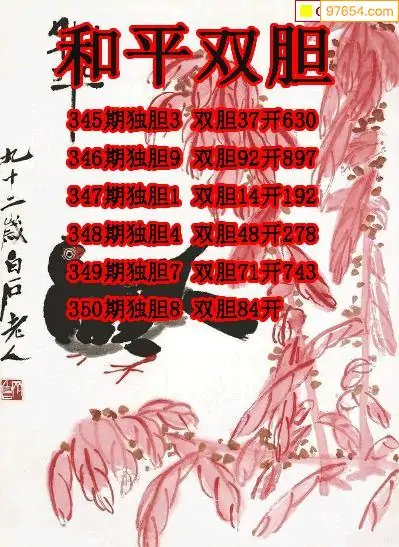 97654.com
和平双胆
345期独胆3 双胆37开630
346期独胆9 双胆92开897
347期独胆1 双胆14开192
348期独胆4 双胆48开278
349期独胆7 双胆71开743
350期独胆8 双胆84开
九十二岁白石老人